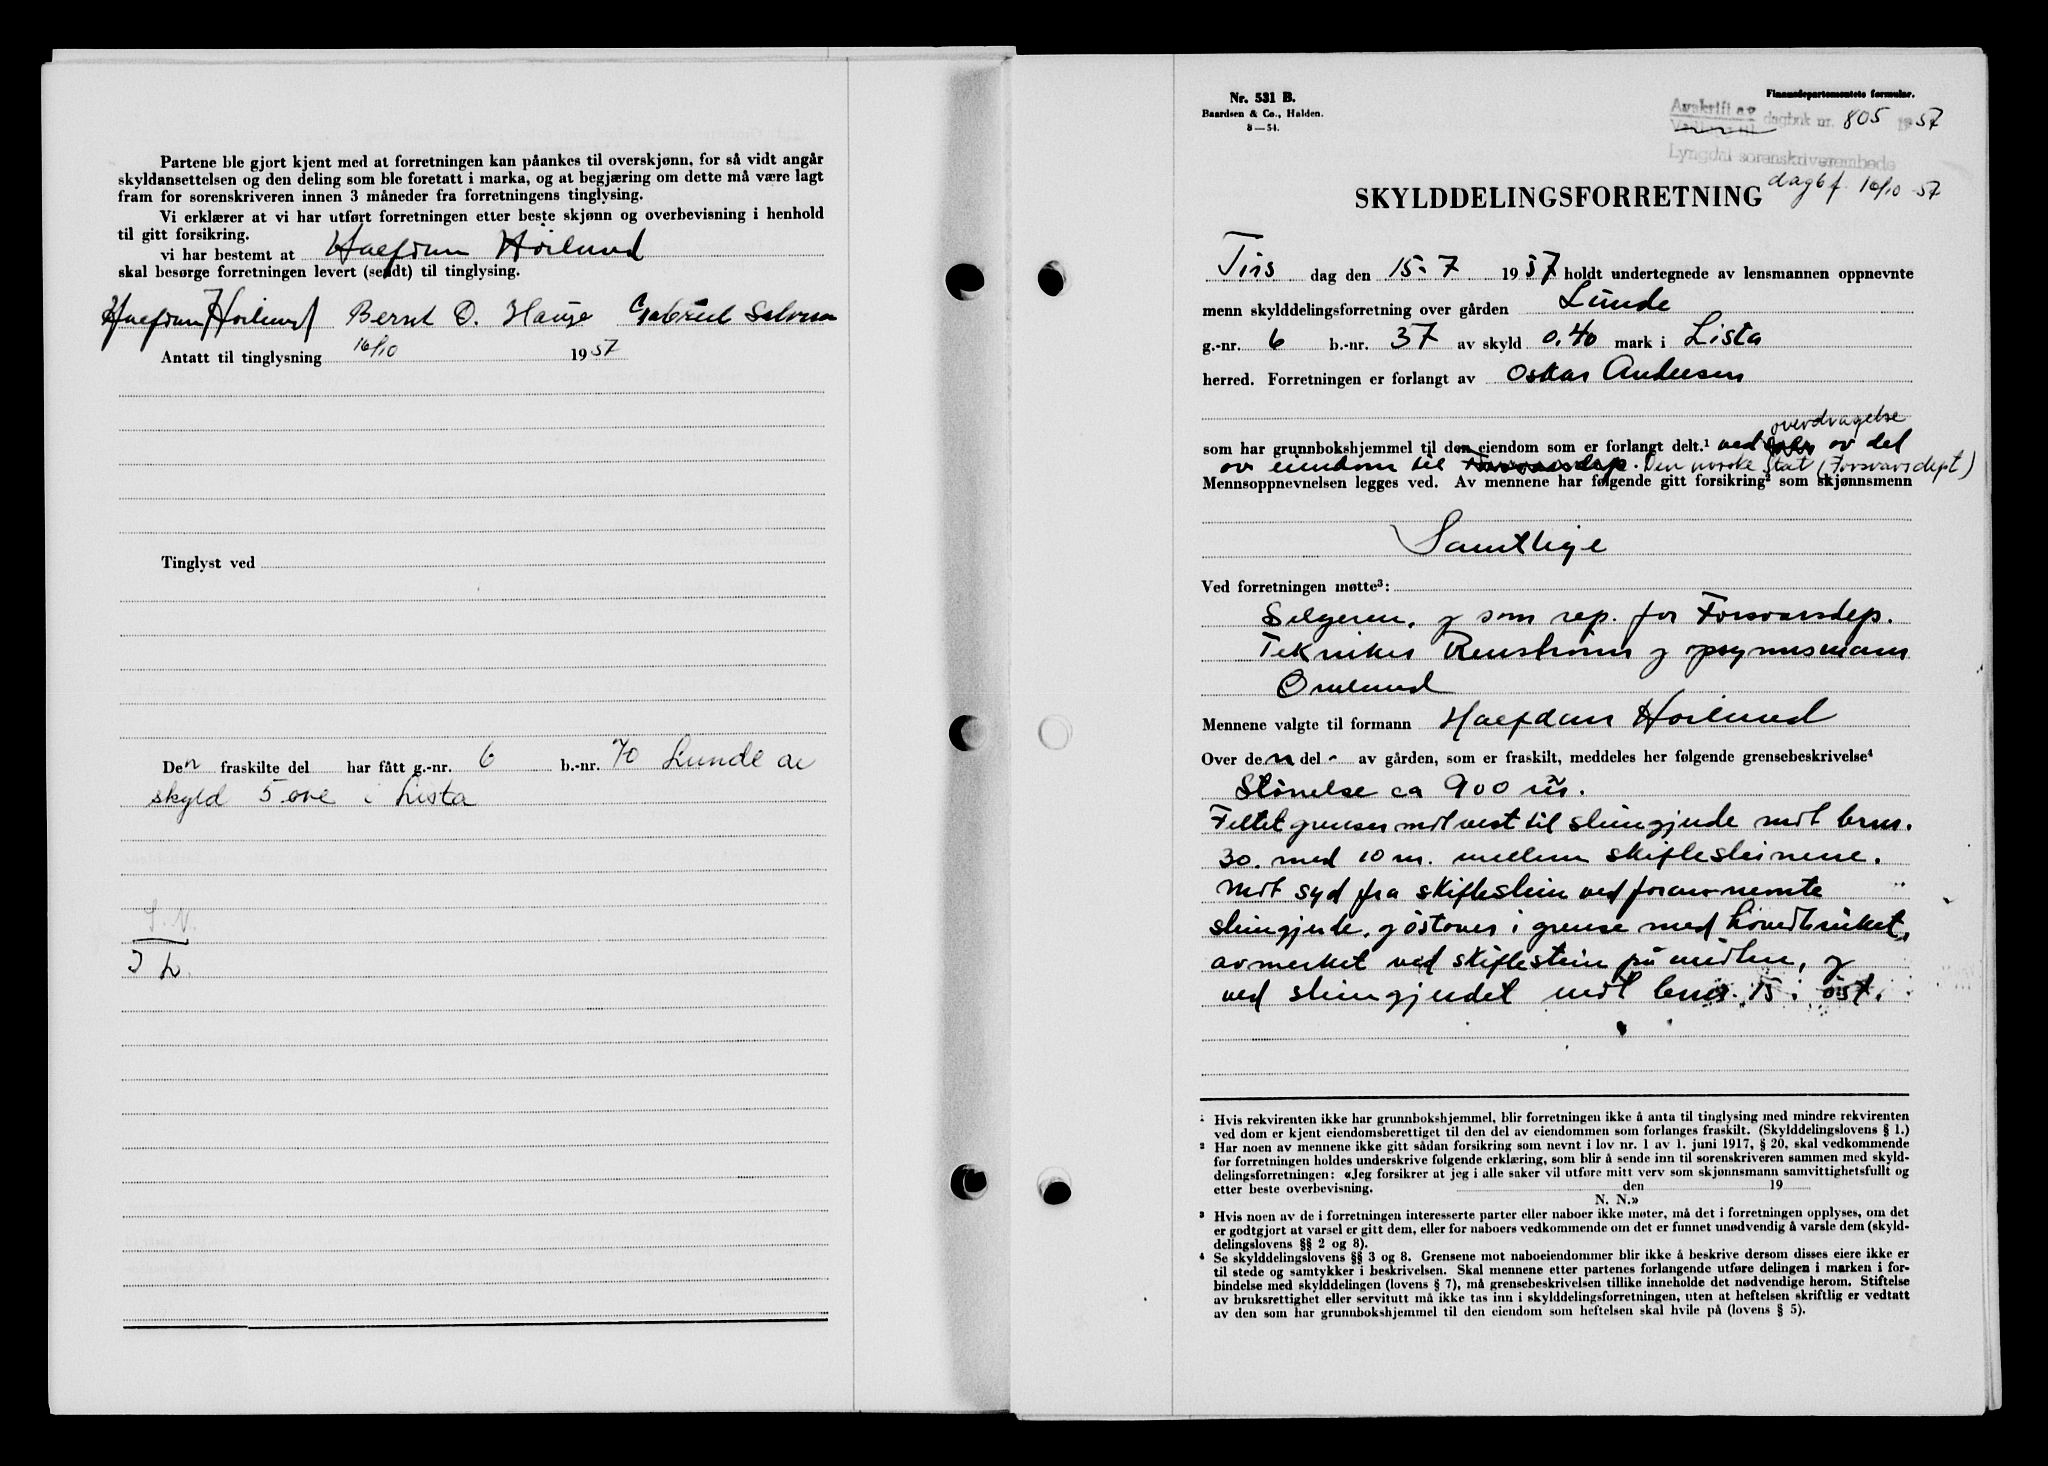 Partene ble gjort kjent med at forretningen kan påankes til overskjønn, for så vidt angår
skyldansettelsen og den deling som ble foretatt i marka, og at begjæring om dette må være lagt
fram for sorenskriveren innen 3 måneder fra forretningens tinglysing.
Vi erklærer at vi har utført forretningen etter beste skjønn og overbevisning i henhold
til gitt forsikring.
vi har bestemt at Halfdan Hoilund
skal besørge forretningen levert (sendt) til tinglysing.
Halfdan Hoilund Bernt O. Hauge Gabriel Salvesen
Antatt til tinglysning 16/10 1957
Tinglyst ved
Den fraskilte del har fått g.-nr. 6 b.-nr. 70 Lunde av
skyld 5 øre i Lista
Nr. 531 B.
Baardsen & Co., Halden.
8—54.
Finansdepartementets formular.
Avskrift av
Vedlegg til dagbok nr. 805 1957
Lyngdal sorenskriverembede
dagbf. 16/10-57
SKYLDDELINGSFORRETNING
Tirs dag den 15-7 1957 holdt undertegnede av lensmannen oppnevnte
menn skylddelingsforretning over gården Lunde
g.-nr. 6 b.-nr. 37 av skyld 0.40 mark i Lista
herred. Forretningen er forlangt av Oskar Andersen
overdragelse
som har grunnbokshjemmel til den eiendom som er forlangt delt.¹ ved salg av del
av eiendom til Forsvarsdep. Den norske Stat (Forsvarsdept)
Mennsoppnevnelsen legges ved. Av mennene har følgende gitt forsikring² som skjønnsmenn
Samtlige
Ved forretningen møtte³:
Selgeren, og som rep. for Forsvarsdep.
Tekniker Renstrøm og opsynsmann
Omlund
Mennene valgte til formann Halfdan Hoilund
Over den del - av gården, som er fraskilt, meddeles her følgende grensebeskrivelse⁴
Størrelse ca 900 m².
Feltet grenser mot vest til steingjerde mot brnr.
30. med 10 m. mellem skiftesteinene.
Mot syd fra skiftestein ved forannemte
steingjerde, og østover i grense med hovedbruket,
avmerket ved skiftestein på midten, og
ved steingjerdet mot brnr. 15 i øst.
¹ Hvis rekvirenten ikke har grunnbokshjemmel, blir forretningen ikke å anta til tinglysing med mindre rekvirenten
ved dom er kjent eiendomsberettiget til den del av eiendommen som forlanges fraskilt. (Skylddelingslovens § 1.)
² Har noen av mennene ikke gitt sådan forsikring som nevnt i lov nr. 1 av 1. juni 1917, § 20, skal vedkommende
før forretningen holdes underskrive følgende erklæring, som blir å sende inn til sorenskriveren sammen med skyld-
delingsforretningen: «Jeg forsikrer at jeg i alle saker vil utføre mitt verv som skjønnsmann samvittighetsfullt og
etter beste overbevisning. den 19
N. N.»
³ Hvis noen av de i forretningen interesserte parter eller naboer ikke møter, må det i forretningen opplyses, om det
er godtgjort at varsel er gitt dem, eller for naboers vedkommende om det er funnet unødvendig å varsle dem (skyld-
delingslovens §§ 2 og 8).
⁴ Se skylddelingslovens §§ 3 og 8. Grensene mot naboeiendommer blir ikke å beskrive dersom disses eiere ikke er
til stede og samtykker i beskrivelsen. Skal mennene etter partenes forlangende utføre delingen i marken i for-
bindelse med skylddelingen (lovens § 7), må grensebeskrivelsen tillike inneholde det nødvendige herom. Stiftelse
av bruksrettighet eller servitutt må ikke tas inn i skylddelingsforretningen, uten at heftelsen skriftlig er vedtatt
av den som har grunnbokshjemmel til den eiendom som heftelsen skal hvile på (lovens § 5).